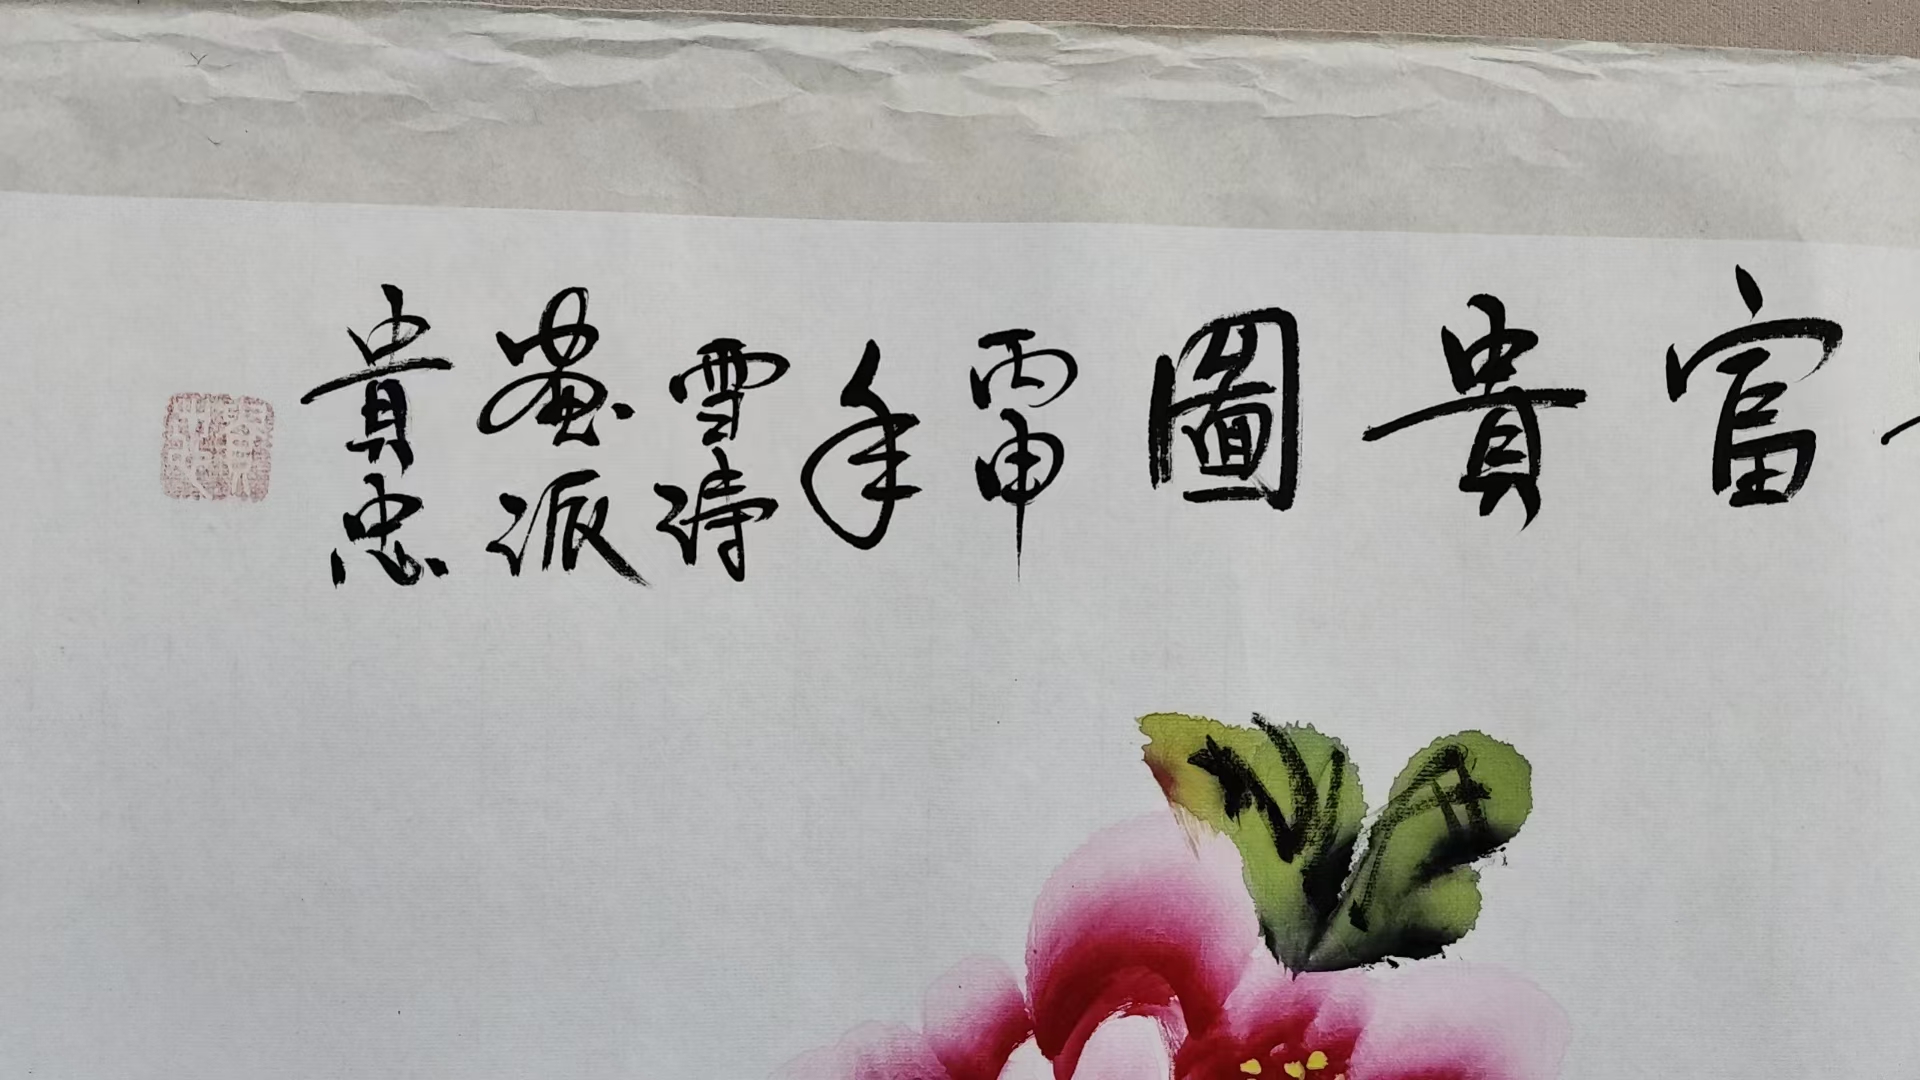 富貴圖
丙申
年
雪濤
畫派
貴忠